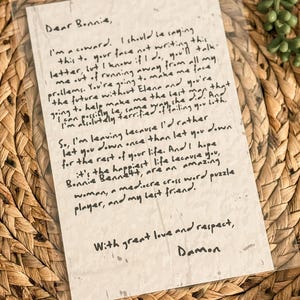 Dear Bonnie,
I'm a coward. I should be saying
this to your face not writing this
letter, but I know if I do, you'll talk
me out of running away from all my
problems. You're going to make me face
the future without Elena and you're
going to help make me the best man that
I can possibly be, same way she did. And
I'm absolutely terrified of failing you both.
So, I'm leaving because I'd rather
let you down once than let you down
for the rest of your life. And I hope
it's the happiest life because you,
Bonnie Bennett, are an amazing
woman, a mediocre cross word puzzle
player, and my best friend.
With great love and respect,
Damon